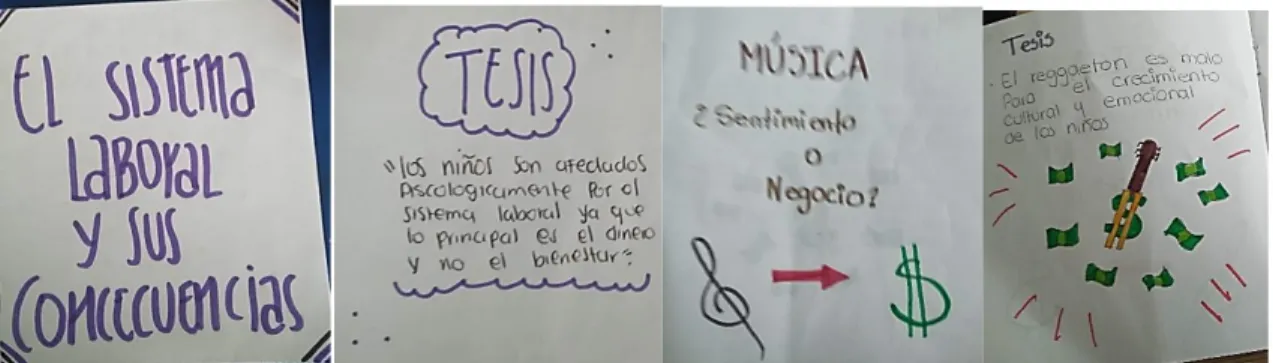 El SISTEMa
LaBORaL
y SUS
CONCECUENCIas
TESIS
"los niños son afectados
Pscologicamente Por el
sistema laboral ya que
lo principal es el dinero
y no el bienestar"
MÚSICA
¿Sentimiento
o
Negocio?
Tesis
. El reggaeton es malo
Para el crecimiento
cultural y emocional
de los niños